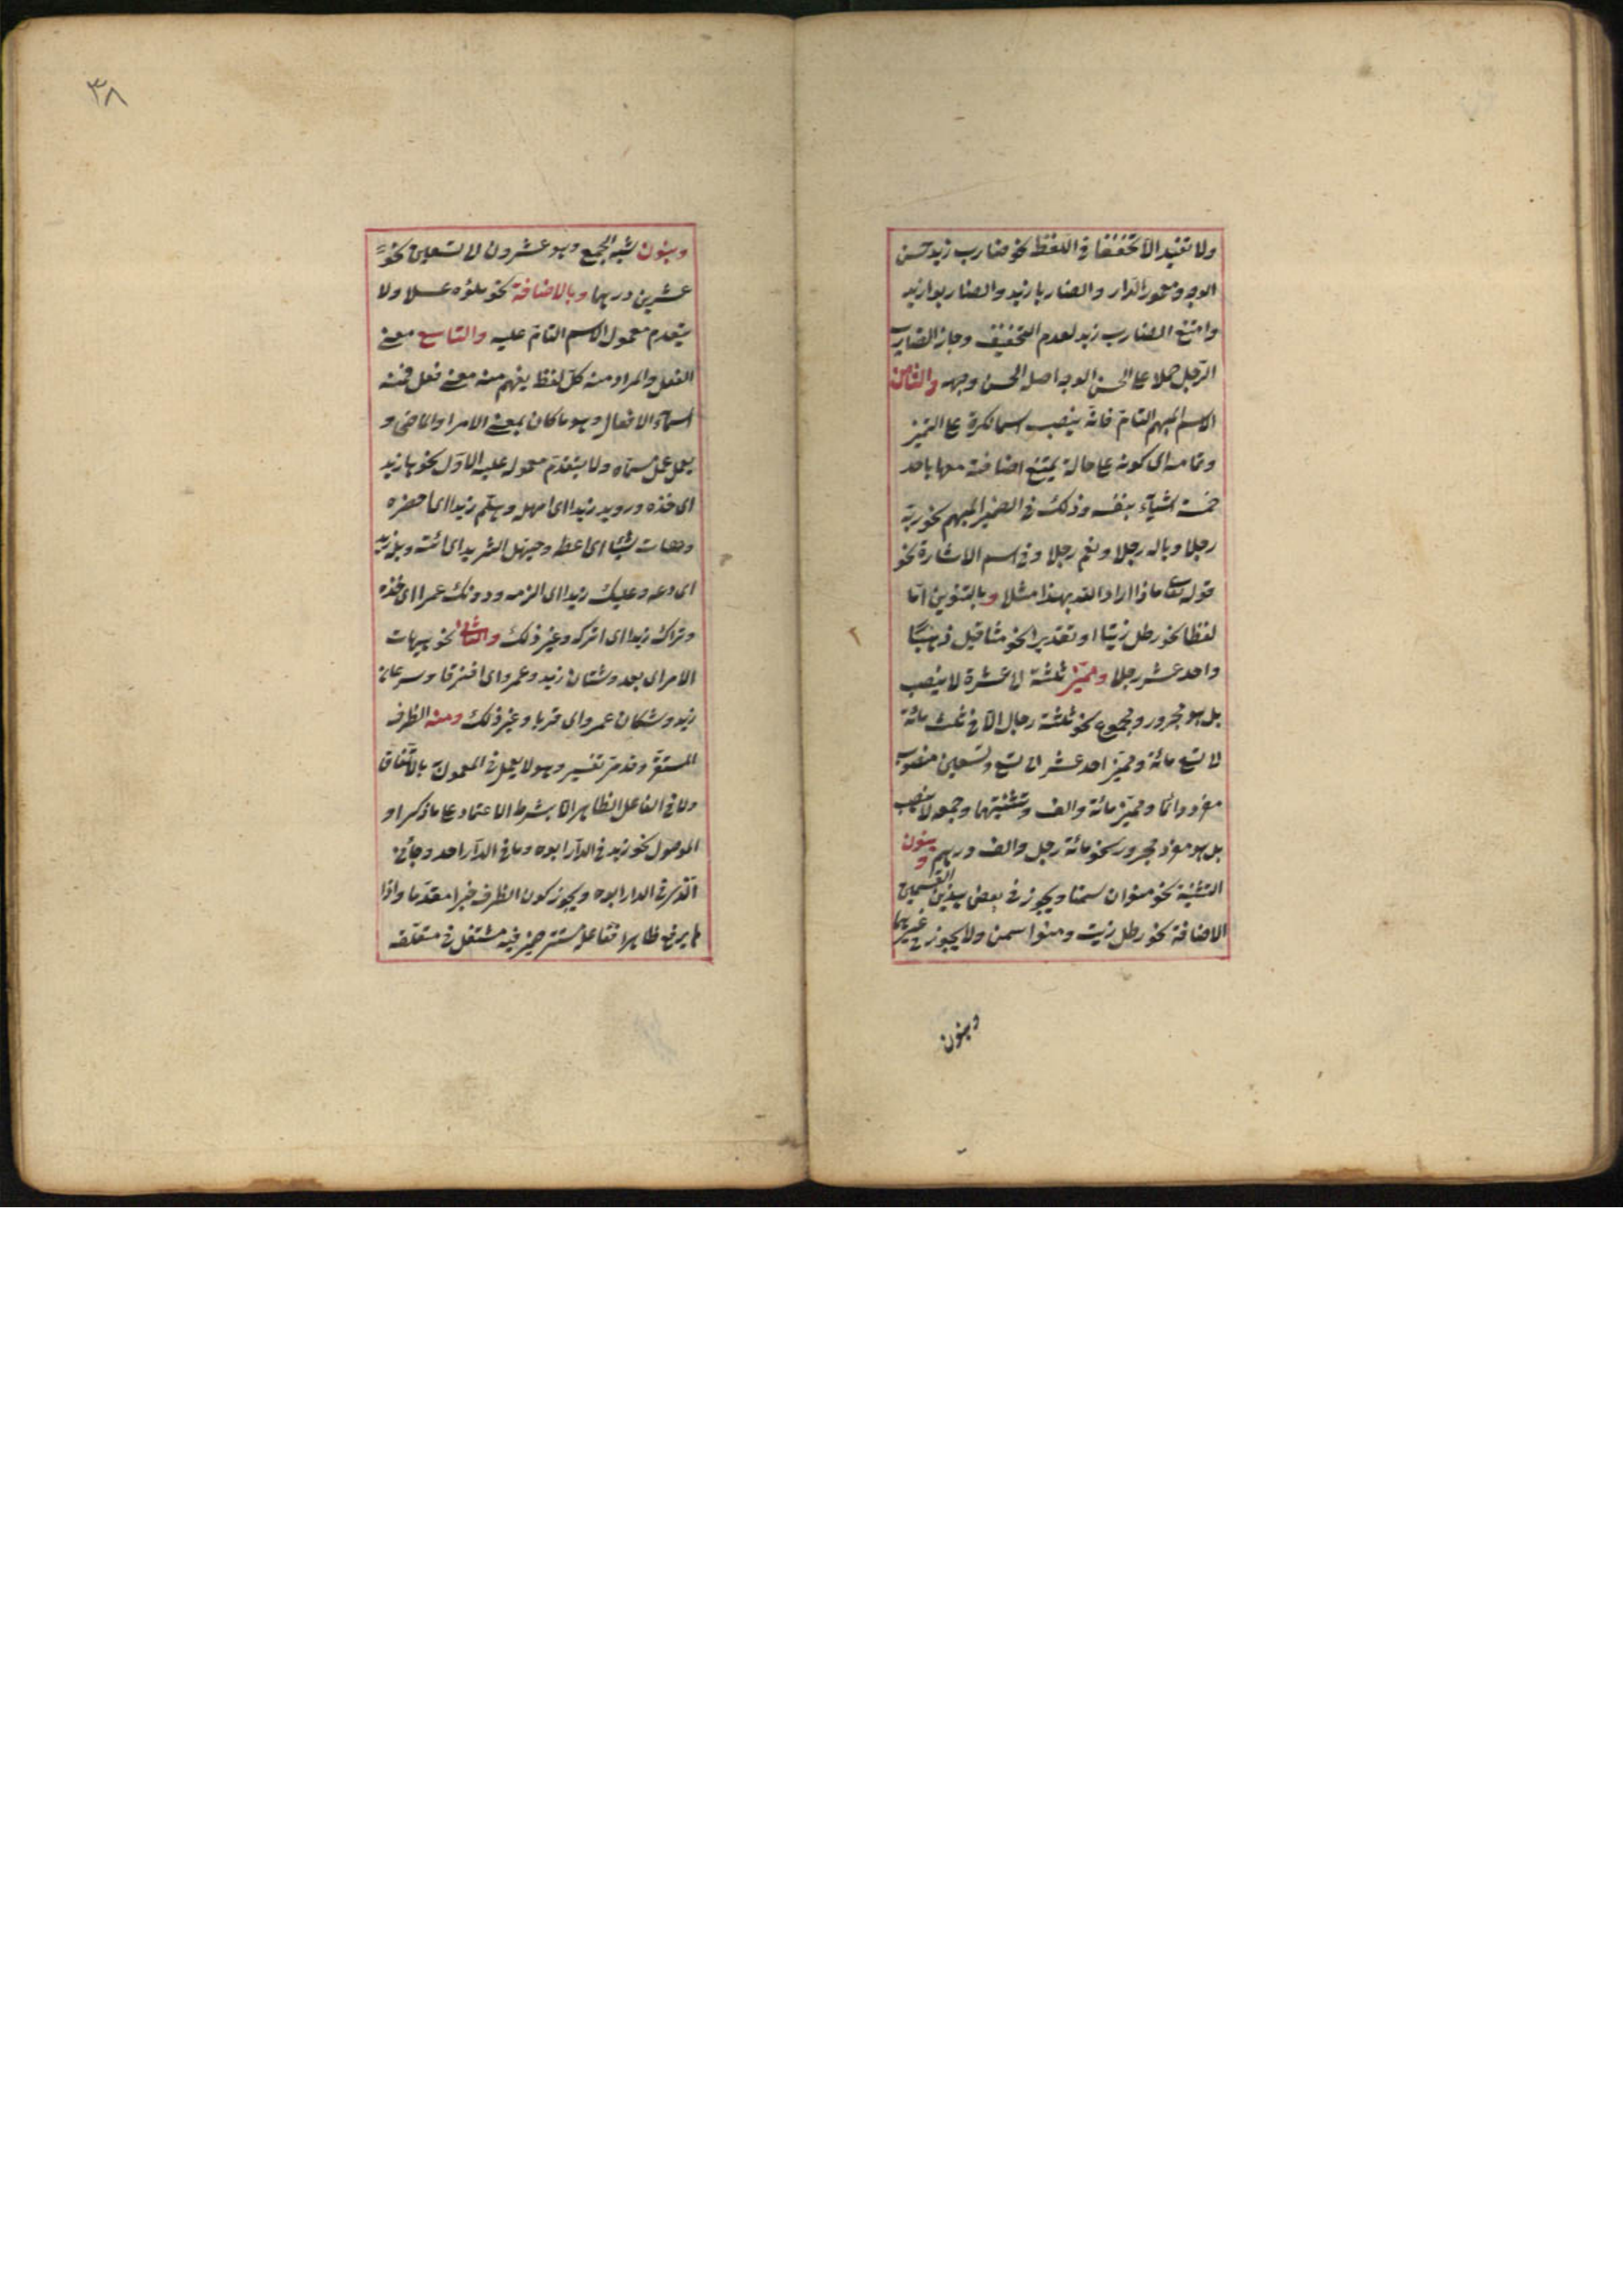 ولا تفيد الا تخفيفا فى اللفظ نحو ضارب زيد وحسن
الوجه ومعمور الدار والضاربا زيد والضاربوا زيد
وامتنع الضارب زيد لعدم التخفيف وجاز الضارب
الرجل حملا على الحسن الوجه اصله الحسن وجهه والثامن
الاسم المبهم التام فانه ينصب اسما نكرة على التميز
وتمامه اى كونه على حالة يمتنع اضافته معها باحد
خمسة اشيآء بنفسه وذلك فى الضمير المبهم نحو ربه
رجلا وياله رجلا ونعم رجلا وفى اسم الاشارة نحو
قوله تعالى ماذا اراد الله بهذا مثلا وبالتنوين اما
لفظا نحو رطل زيتا او تقديرا نحو مثاقيل ذهبا
واحد عشر رجلا ومميز ثلثة الى عشرة لا ينصب
بل هو مجرور ومجموع نحو ثلثة رجال الا فى ثلث مائة
الى تسع مائة ومميز احد عشر الى تسع وتسعين منصوب
مفرد دائما ومميز مائة والف وتثنيتهما وجمعه لا ينصب
بل هو مفرد مجرور نحو مائة رجل والف درهم وبنون
التثنية نحو منوان سمنا ويجوز فى بعض هذين القسمين
الاضافة نحو رطل زيت ومنوا سمن ولا يجوز فى غيرهما
وبنون
٣٨
وبنون شبه الجمع وهو عشرون الى تسعين نحو
عشرين درهما وبالاضافة نحو ملؤه عسلا ولا
يتقدم معمول الاسم التام عليه والتاسع معنى
الفعل والمراد منه كل لفظ يفهم منه معنى فعل فمنه
اسمآء الافعال وهو ما كان بمعنى الامر او الماضى و
يعمل عمل مسماه ولا يتقدم معموله عليه الاول نحو ها زيد
اى خذه ورويد زيدا اى امهله وهلم زيدا اى احضره
وهات شيئا اى اعطه وحيهل الثريد اى ائته وبله زيد
اى دعه وعليك زيدا اى الزمه ودونك عمرا اى خذه
وتراك زيدا اى اتركه وغير ذلك والثانى نحو هيهات
الامر اى بعد وشتان زيد وعمرو اى افترقا وسرعان
زيد وشكان عمرو اى قربا وغير ذلك ومنه الظرف
المستقر وقد مر تفسيره وهو لا يعمل فى المفعول به بالاتفاق
ولا فى الفاعل الظاهر الا بشرط الاعتماد على ما ذكر او
الموصول نحو زيد فى الدار ابوه وما فى الدار احد وجائنى
الذى فى الدار ابوه ويجوز كون الظرف خبرا مقدما واذا
لم يرفع ظاهرا ففاعله مستتر فيه منتقل من متعلقه